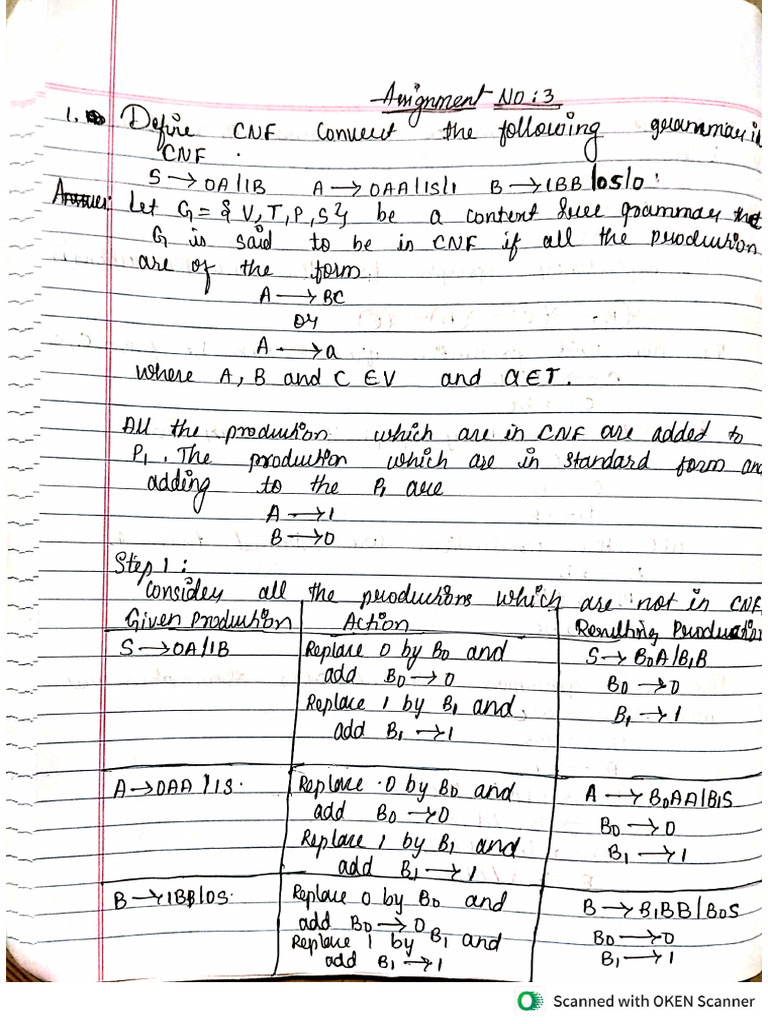 Assignment NO: 3
1. Define CNF convert the following grammar in
CNF.
S → 0A/1B A → 0AA/1S/1 B → 1BB/0S/0:
Answer: Let G = { V, T, P, S } be a content free grammar the
G is said to be in CNF if all the production
are of the form
A → BC
or
A → a
where A, B and C ∈ V and a ∈ T.
All the production which are in CNF are added to
P1. The production which are in standard form and
adding to the P1 are
A → 1
B → 0
Step 1:
Consider all the productions which are not in CNF
Given Production Action Resulting Production
S → 0A/1B Replace 0 by B0 and S → B0A/B1B
add B0 → 0 B0 → 0
Replace 1 by B1 and. B1 → 1
add B1 → 1
A → 0AA/1S. Replace 0 by B0 and A → B0AA/B1S
add B0 → 0 B0 → 0
Replace 1 by B1 and B1 → 1
add B1 → 1
B → 1BB/0S. Replace 0 by B0 and B → B1BB/B0S
add B0 → 0 B0 → 0
Replace 1 by B1 and B1 → 1
add B1 → 1
Scanned with OKEN Scanner